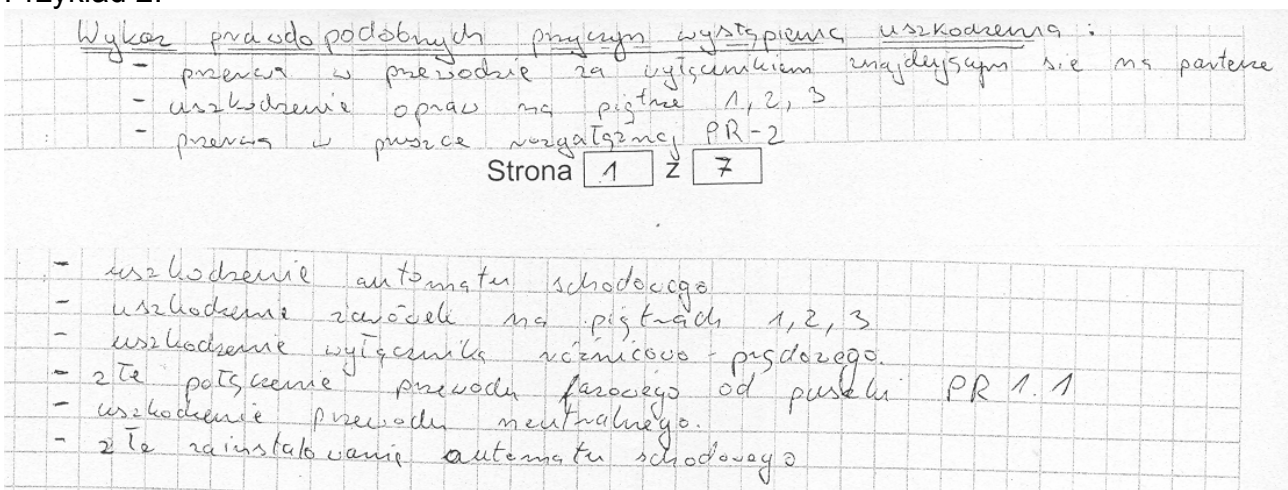 Przykład 2.
Wykaz prawdopodobnych przyczyn wystąpienia uszkodzenia :
- przerwa w przewodzie za wyłącznikiem znajdującym się na parterze
- uszkodzenie opraw na piętrze 1, 2, 3
- przerwa w puszce rozgałęźnej PR-2
Strona 1 z 7
- uszkodzenie automatu schodowego
- uszkodzenie żarówek na piętrach 1, 2, 3
- uszkodzenie wyłącznika różnicowo-prądowego.
- złe połączenie przewodu fazowego od puszki PR 1.1
- uszkodzenie przewodu neutralnego.
- złe zainstalowanie automatu schodowego